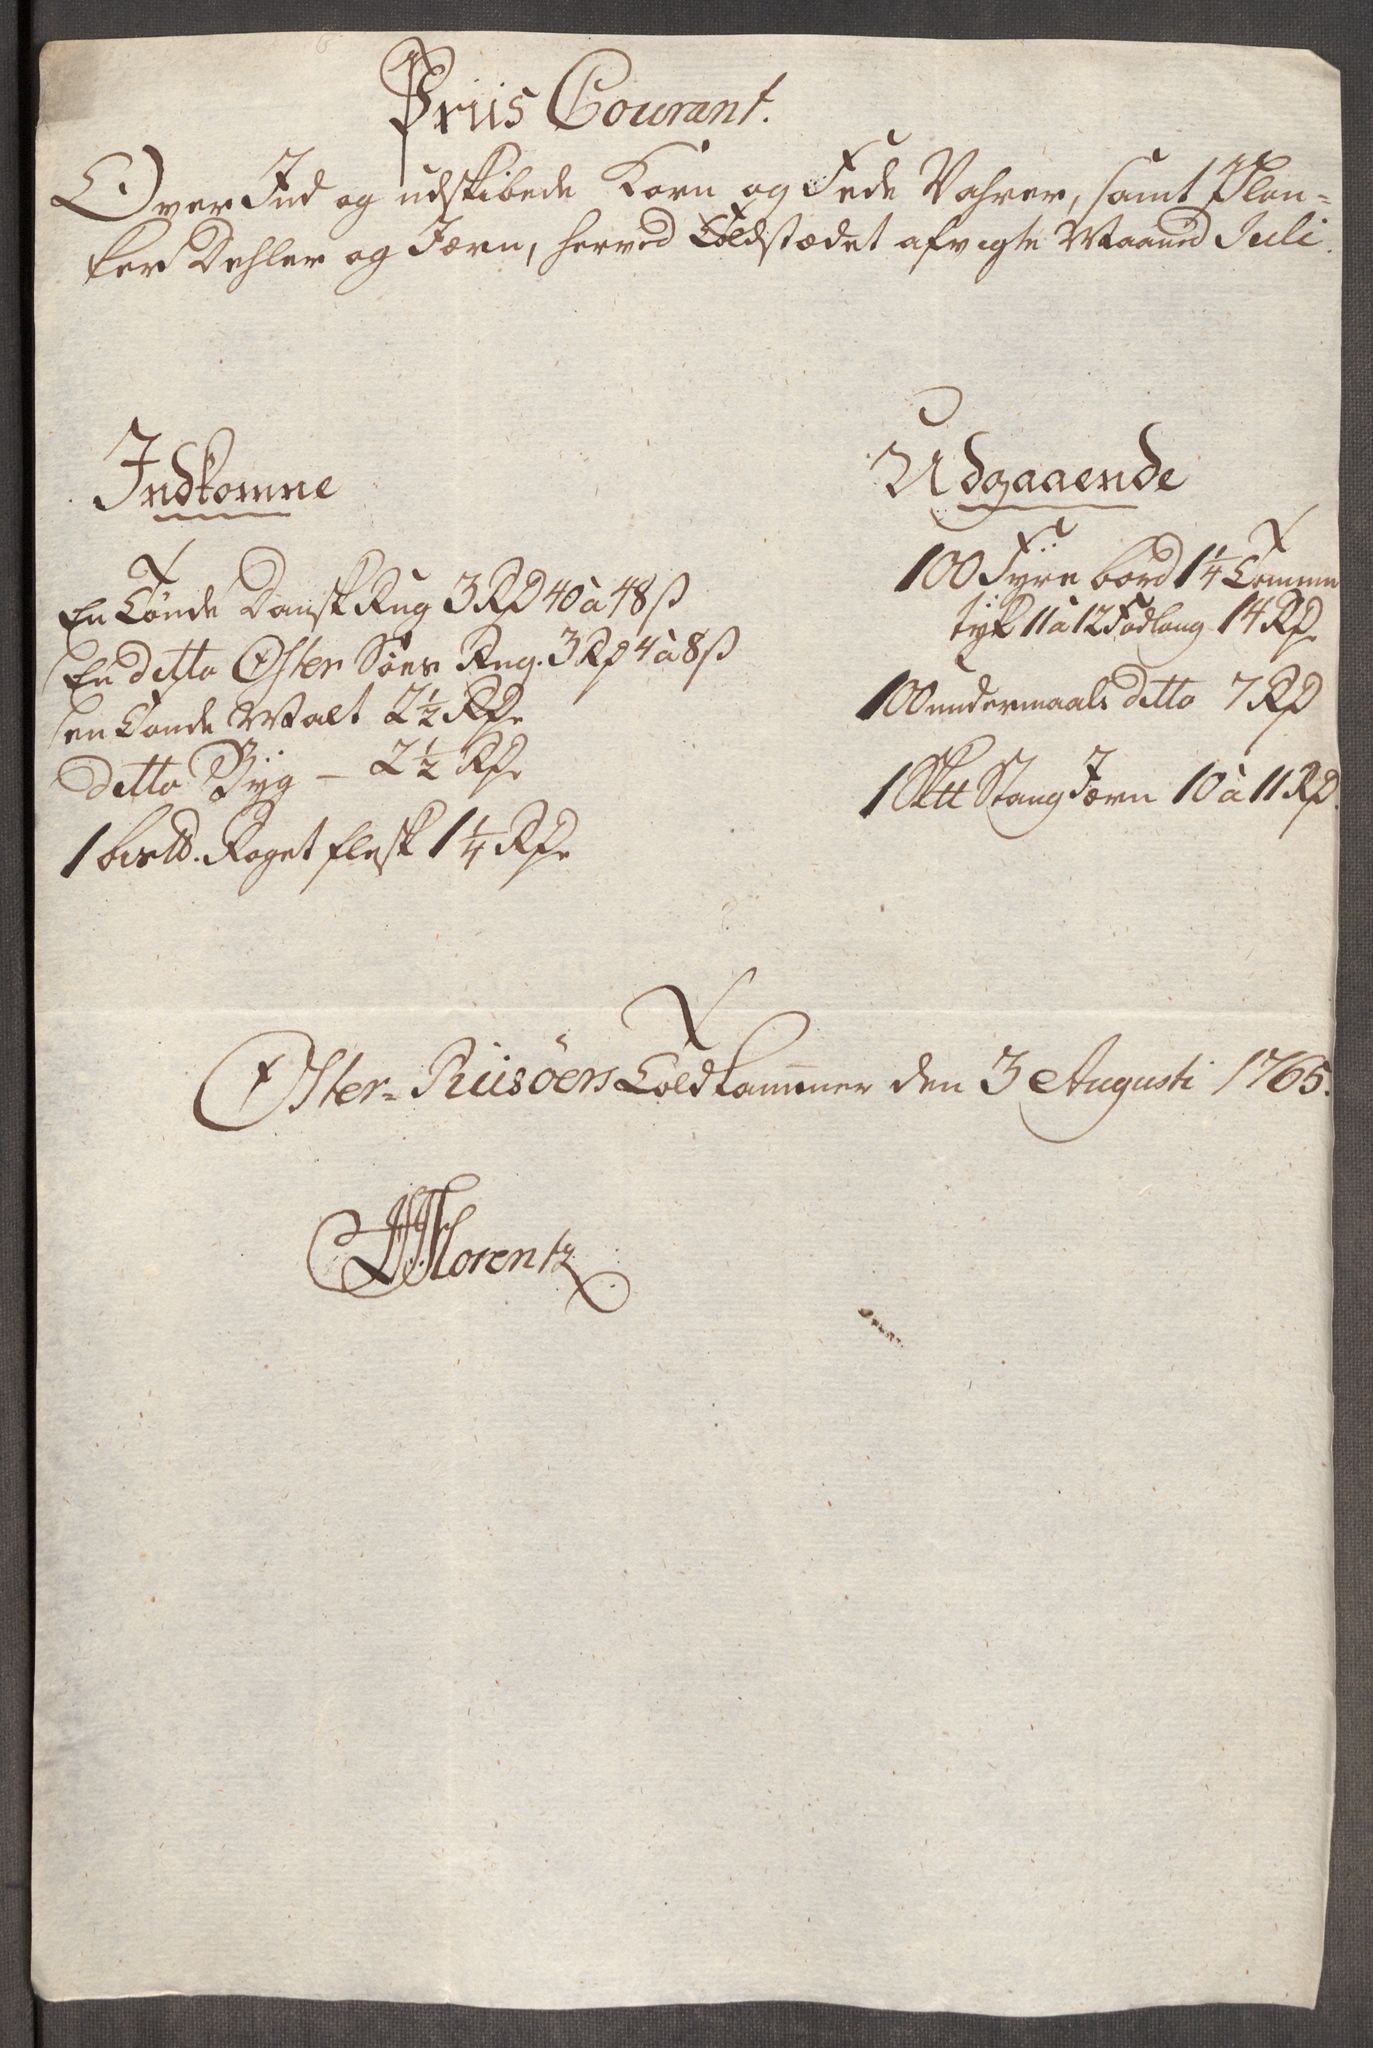 Priis Courant.
Over Ind og udskibede Korn og Fede Vahrer, samt Plan-
ker Dehler og Jern, herved Toldstædet afvigte Maaned Juli.
Indkomne
En Tønde Dansk Rug 3 Rd 40 à 48 ß
En ditto Øster Søes Rug. 3 Rd 4 à 8 ß
en Tønde Malt 2½ Rd.
ditto Byg – 2½ Rd.
1 bis℔. Røget flesk 1¼ Rd.
Udgaaende
100 Fyre bord 1¼ Tomme
tyk 11 à 12 Fod lang 14 Rd.
100 undermaals ditto 7 Rd
1 S℔ Stang Jern 10 à 11 Rd.
Øster-Riisöers Toldkammer den 3 Augusti 1765.
Florentz